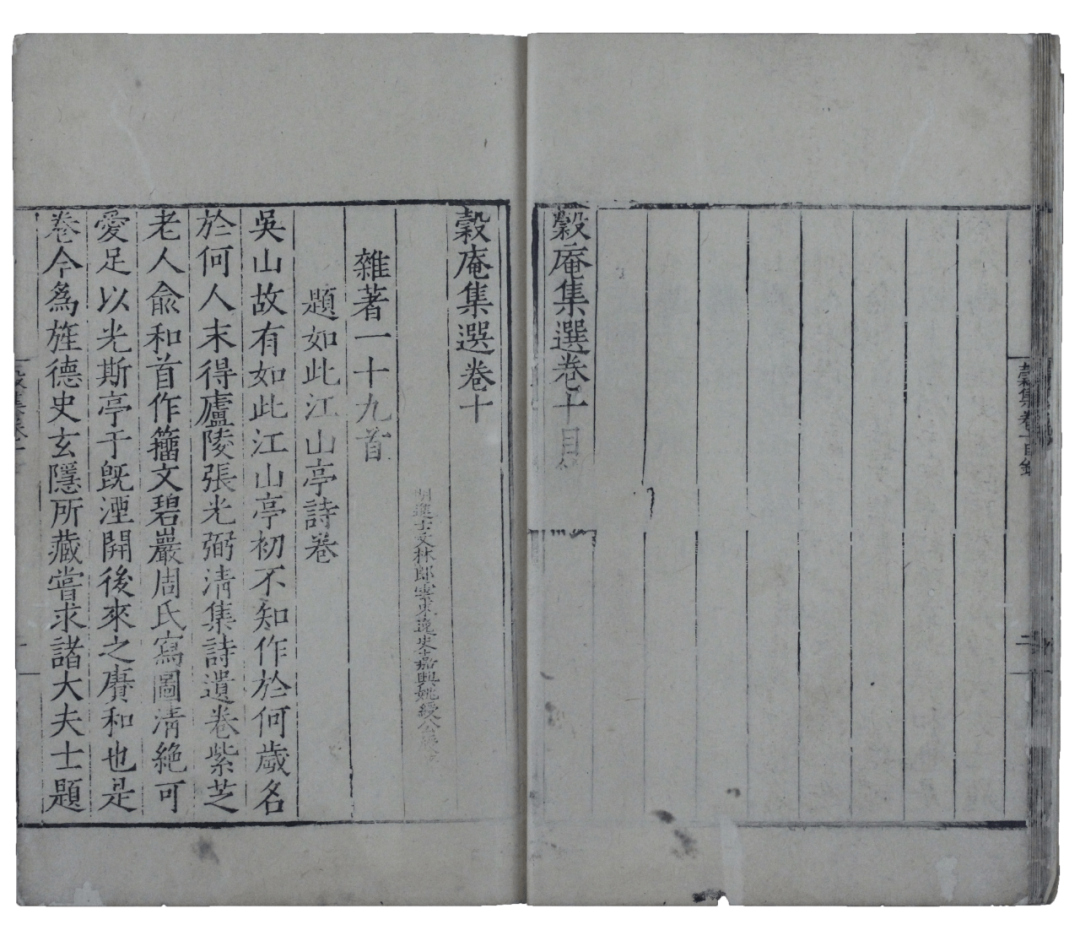 穀庵集選卷十目
穀集卷十目錄
穀庵集選卷十
明進士文林郎雲東逸史嘉興姚綬公綬
雜著一十九首
題如此江山亭詩卷
吳山故有如此江山亭初不知作於何歲名
於何人末得廬陵張光弼淸集詩遺卷紫芝
老人兪和首作籀文碧巖周氏寫圖淸絶可
愛足以光斯亭于旣湮開後來之賡和也是
卷今爲旌德史玄隱所藏嘗求諸大夫士題